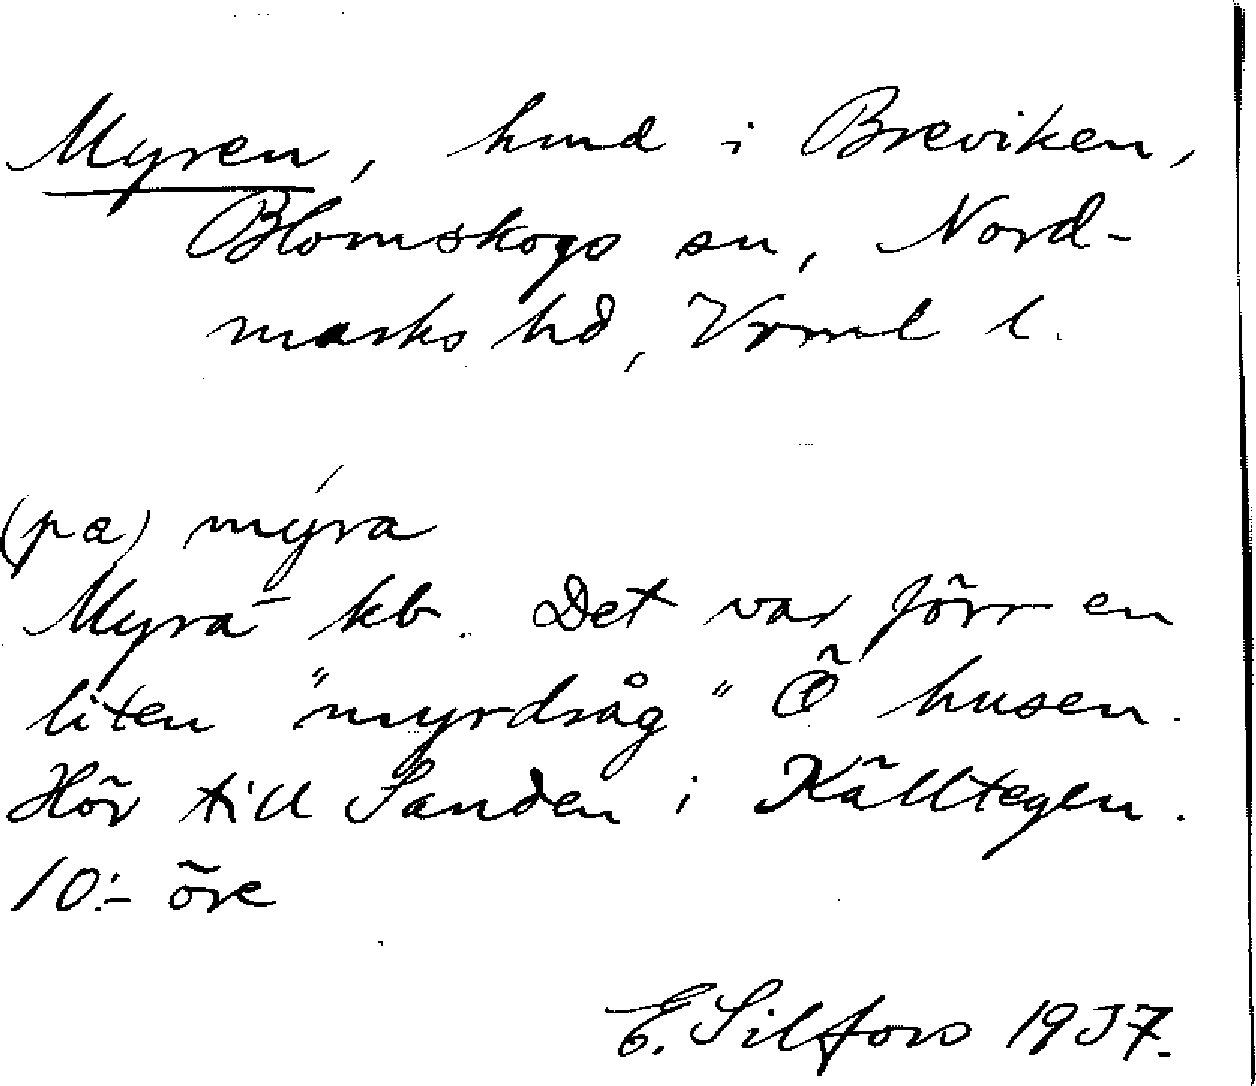 Myren, hmd i Breviken,
Blomskogs sn, Nord-
marks hd, Vrml l.
(pa) mýra
Myra- kb. Det var förr en
liten "myrdråg" Ö husen.
Hör till Sanden i Källtegen.
10:- öre
E. Silfors 1937.